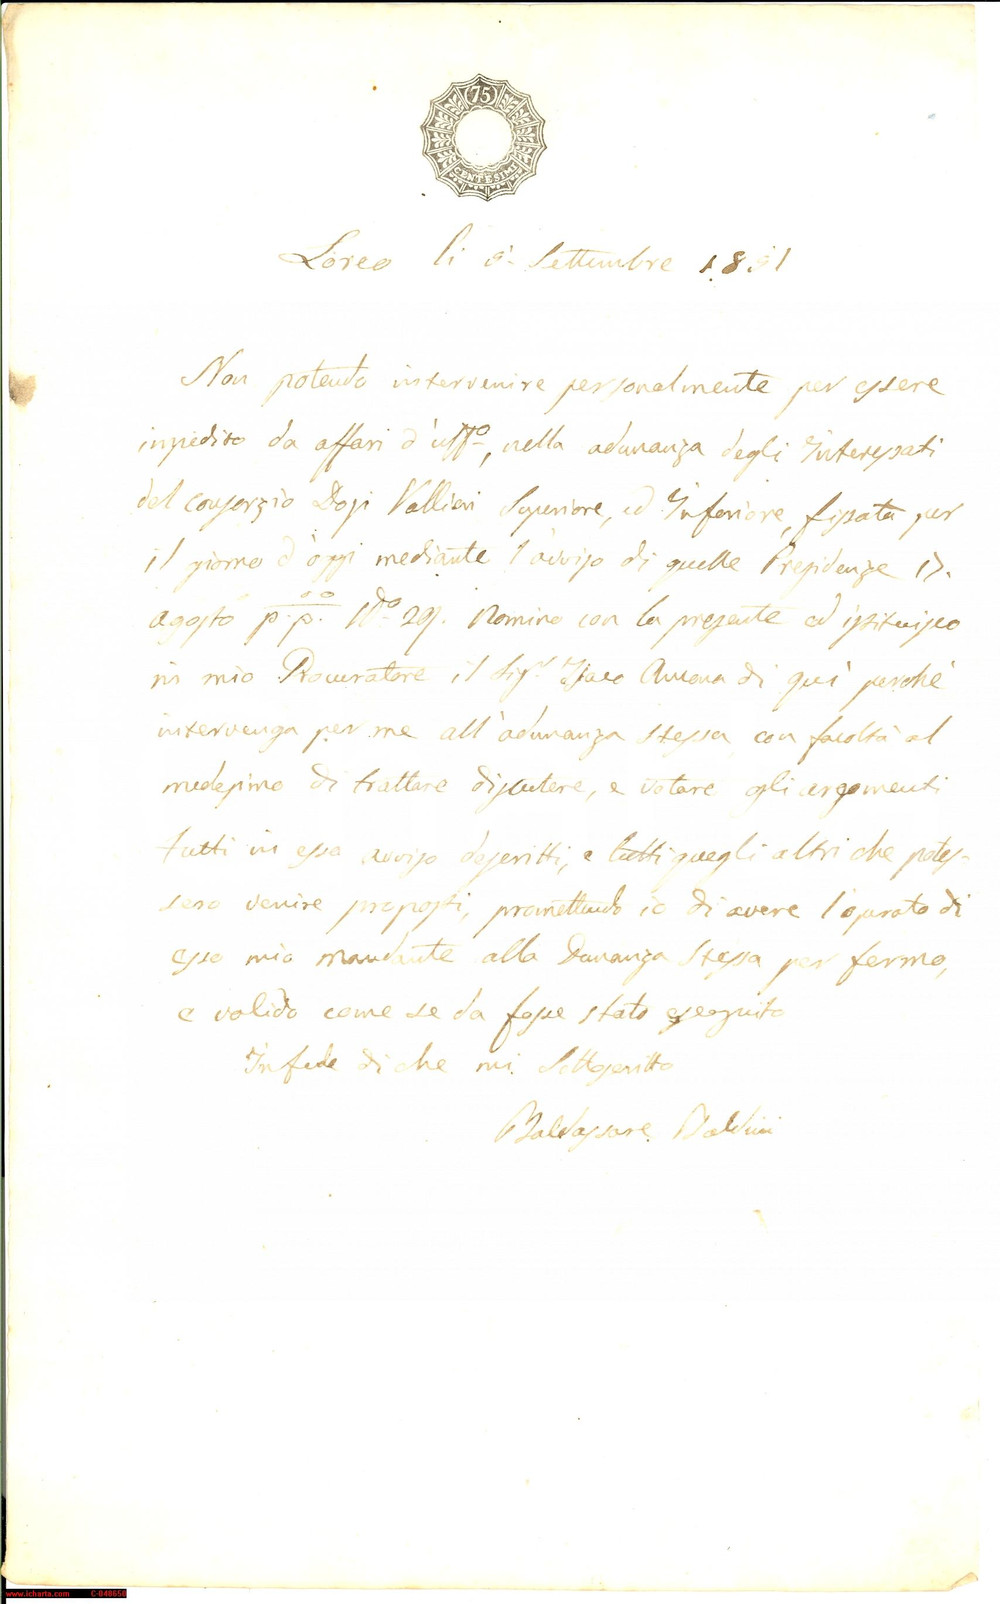 75
CENTESIMI
Loreo li 5 Settembre 1851
Non potendo intervenire personalmente per essere
impedito da affari d'uffo, nella adunanza degli Interessati
del consorzio Dossi Vallieri Superiore, ed Inferiore, fissata per
il giorno d'oggi mediante l'avviso di quelle Presidenze 17.
agosto p.p. No 29. Nomino con la presente ed istituisco
in mio Procuratore il Sigr Isaco Ancona di quì perchè
intervenga per me all'adunanza stessa con facoltà al
medesimo di trattare discutere, e votare gli argomenti
tutti in esso avviso descritti, e tutti quegli altri che potes-
sero venire proposti, promettendo io di avere l'operato di
esso mio mandante alla Dunanza stessa per fermo,
e valido come se da fosse stato eseguito
In fede di che mi Sottoscritto
Baldassare Baldini
www.icharta.com C-040550